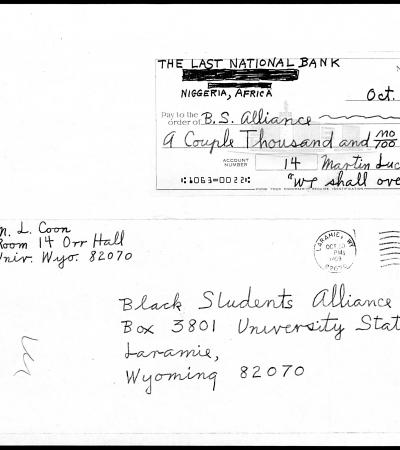 THE LAST NATIONAL BANK
NIGGERIA, AFRICA
Oct.
Pay to the
order of B.S. Alliance
A Couple Thousand and no/100
ACCOUNT
NUMBER
14 Martin Luc
⑆1063=0022⑆ "We shall ove
M. L. Coon
Room 14 Orr Hall
Univ. Wyo. 82070
LARAMIE, WY
OCT
PM
1969
Black Students Alliance
Box 3801 University Stat
Laramie,
Wyoming 82070